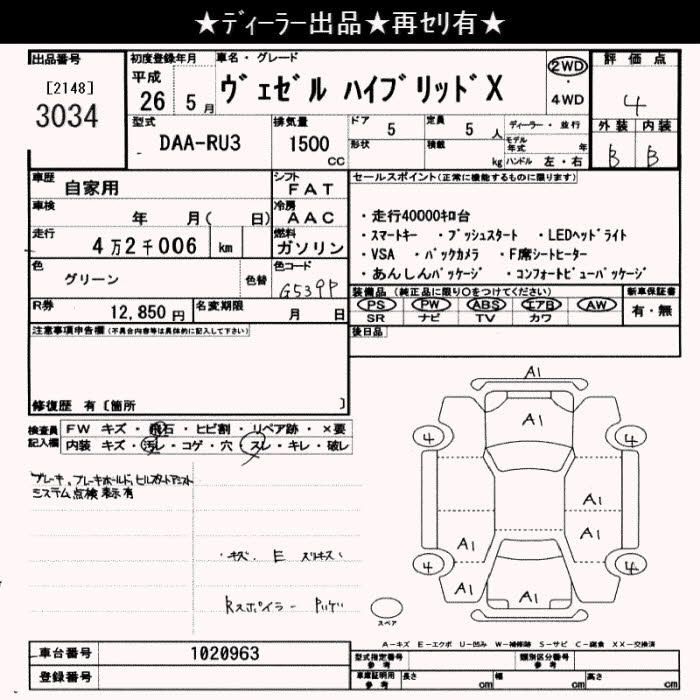 ★ディーラー出品★再セリ有★
出品番号
[2148]
3034
初度登録年月
平成
26 5月
車名・グレード
ヴェゼル ハイブリッドX
2WD
・
4WD
評価点
4
外装 内装
B B
型式
DAA-RU3
排気量
1500
CC
ドア 5
定員 5 人
形状
積載 kg
ディーラー・並行
モデル年式 年
ハンドル 左・右
車歴
自家用
シフト
FAT
車検
年 月( 日)
冷房
AAC
走行
4万2千006 km
燃料
ガソリン
色
グリーン
色替
色コード
G539P
R券
12,850円
名変期限
月 日
セールスポイント(正常に機能するものに限ります)
・走行40000キロ台
・スマートキー ・プッシュスタート ・LEDヘッドライト
・VSA ・バックカメラ ・F席シートヒーター
・あんしんパッケージ ・コンフォートビューパッケージ
装備品(純正品に限り○をつけてください)
PS PW ABS エアB AW
SR ナビ TV カワ
新車保証書
有・無
後日品
注意事項申告欄(不具合内容等は具体的に記入して下さい)
修復歴 有〔箇所 〕
検査員記入欄
FW キズ・飛石・ヒビ割・リペア跡・×要
内装 キズ・汚レ・コゲ・穴・スレ・キレ・破レ
ブレーキ、ブレーキホールド、ヒルスタートアシスト
システム点検表示有
・キズ、E スリキズ
Rスポイラー
A1
A1
4 4
A1
A1 A1
4 4
A1 A1
スペア
A-キズ E-エクボ U-凹み W-補修跡 S-サビ C-腐食 XX-交換済
車台番号
1020963
登録番号
型式指定番号 参考
類別区分番号 参考
車庫証明用 参考
長さ cm 幅 cm 高さ cm